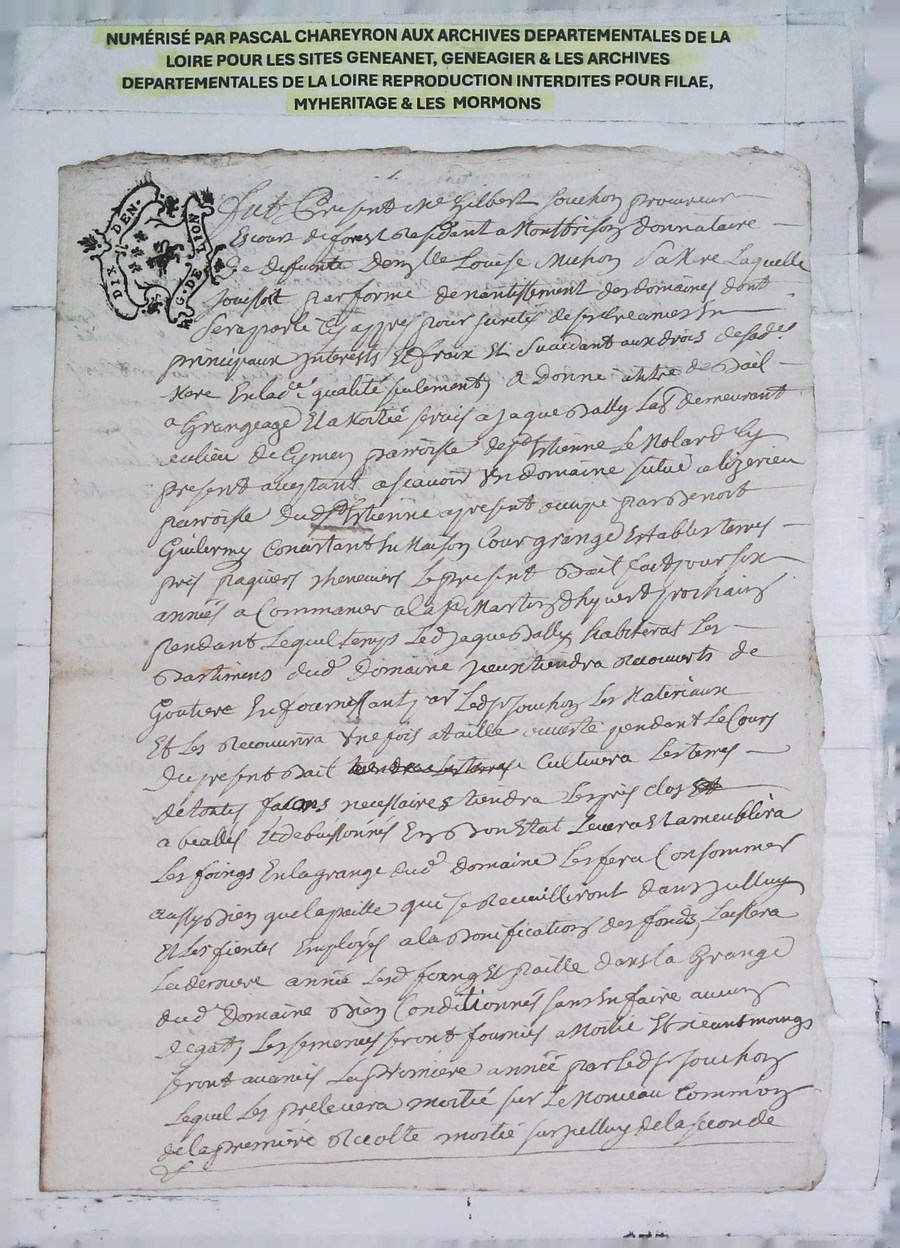 NUMÉRISÉ PAR PASCAL CHAREYRON AUX ARCHIVES DEPARTEMENTALES DE LA
LOIRE POUR LES SITES GENEANET, GENEAGIER & LES ARCHIVES
DEPARTEMENTALES DE LA LOIRE REPRODUCTION INTERDITES POUR FILAE,
MYHERITAGE & LES MORMONS
DIX DEN.
G. DE LION
Fut Present Me Gilbert Souchon procureur
Es cours de forest residant a Montbrison donnataire
de defunte Demlle Louise Michon sa Mere Laquelle
Jouissoit par forme de nantissement des domaines dont
Sera parlé Cy apres pour suretés de
principaux Interests Et fraix Et Succedant aux drois de sad.
Mere En lad. qualité seulement, A Donné a titre de Bail
a Grangeage Et a Moitié a Jaque Bally Lab. demeurant
au lieu de paroisse de St Etienne Le Molard Cy
present acceptant ascavoir Un domaine situé a lizerieu
paroisse dud St Etienne a present occupé par Benoit
Guilermy Consistant En Maison Cour grange Estables terres
prés paquiers cheneviers Le present Bail fait pour six
années a Commancer a la st Martin d'hyvert prochain
pendant Lequel temps Led Jaque Bally habiterat Les
Bastimens dud. Domaine Iceux tiendra recouverts de
Goutiere En fournissant par Led sr Souchon Les Materiaux
Et Les Recouvrira Une fois a taille ouverte pendant Le Cours
Du present Bail Cultivera Les terres
de toutes facons necessaires tiendra Les prés clos
a béallés Et debuissonnés En Bon Estat Levera Et ameublira
Les foings En la grange dud. Domaine Les fera Consommer
aussy Bien que la paille qui se Recueilliront dans Icelluy
Et Les fientes Employés a la Bonification des fonds, Laissera
La derniere année Lesd foing Et paille dans La Grange
dud. Domaine Bien Conditionnés sans En faire aucun
degat, Les semences seront fournies a Moitié Et Neantmoings
seront avancés La premiere année par Led sr Souchon
Lequel Les prelevera moitié sur Le Monceau Commun
de la premiere Recolte moitié sur Icelluy de la seconde